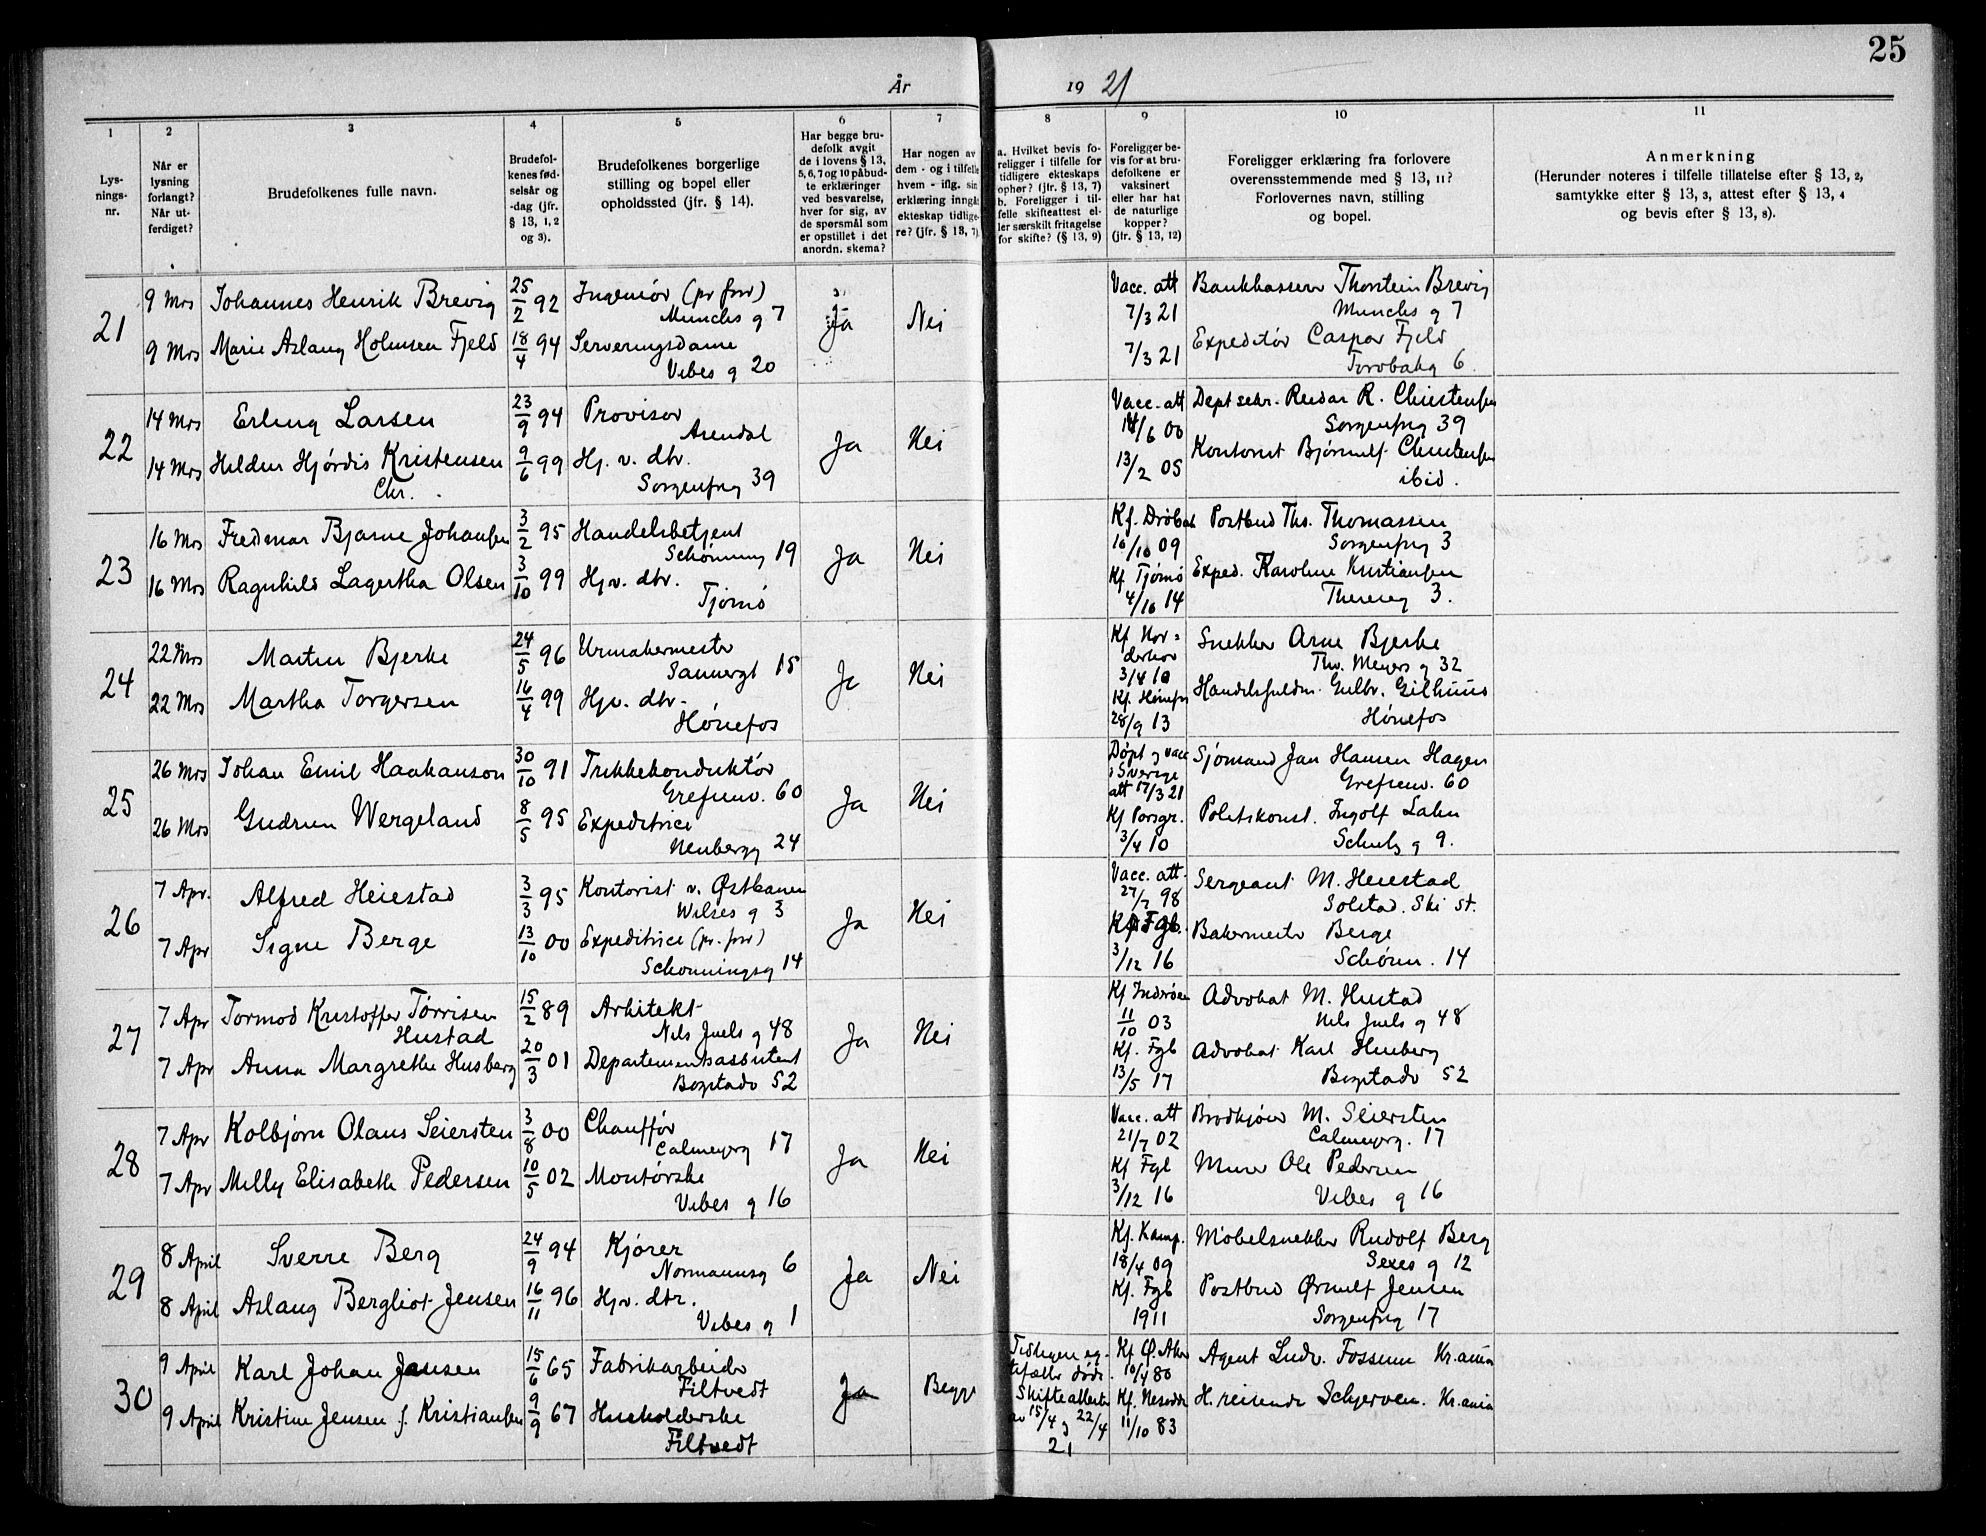 25
År 1921
1 2 3 4 5 6 7 8 9 10 11
Lys-
nings-
nr.
Når er
lysning
forlangt?
Når ut-
ferdiget?
Brudefolkenes fulle navn.
Brudefol-
kenes fød-
selsår og
-dag (jfr.
§ 13, 1, 2
og 3).
Brudefolkenes borgerlige
stilling og bopel eller
opholdssted (jfr. § 14).
Har begge bru-
defolk avgit
de i lovens § 13,
5, 6, 7 og 10 påbud-
te erklæringer
ved besvarelse,
hver for sig, av
de spørsmål som
er opstillet i det
anordn. skema?
Har nogen av
dem - og i tilfelle
hvem - iflg. sin
erklæring inngåt
ekteskap tidlige-
re? (jfr. § 13, 7)
a. Hvilket bevis fo-
religger i tilfelle for
tidligere ekteskaps
ophør? (jfr. § 13, 7)
b. Foreligger i til-
felle skifteattest el-
ler særskilt fritagelse
for skifte? (§ 13, 9)
Foreligger be-
vis for at bru-
defolkene er
vaksinert
eller har hat
de naturlige
kopper?
(jfr. § 13, 12)
Foreligger erklæring fra forlovere
overensstemmende med § 13, 11?
Forlovernes navn, stilling
og bopel.
Anmerkning
(Herunder noteres i tilfelle tillatelse efter § 13, 2,
samtykke efter § 13, 3, attest efter § 13, 4
og bevis efter § 13, 8).
21
9 Mrs Johannes Henrik Brevig 25/2 92 Ingeniør (pr fsv)
Munchs g 7
Ja Nei
9 Mrs Marie Aslaug Holmsen Fjeld 18/4 94 Serveringsdame
Vibes g 20
Vacc. att
7/3 21
7/3 21
Bankkasserer Thorstein Brevig
Munchs g 7
Expeditør Caspar Fjeld
6
22
14 Mrs Erling Larsen 23/9 94 Provisor
Arendal
Ja Nei
14 Mrs Hjørdis Kristensen 9/6 99 Hj. v. dtr.
Chr. Sorgenfrig 39
Vacc. att
14/6 00
13/2 05
Dept sekr. Reidar R. Christensen
Sorgenfrig 39
Kontorist Bjørnulf Christensen
ibid.
23
16 Mrs Fredmar Bjarne Johansen 3/2 95 Handelsbetjent
Schønning 19
Ja Nei
16 Mrs Ragnhild Lagertha Olsen 3/10 99 Hjv. dtr.
Tjømø
Kf. Drøbak
10/10 09
Kf Tjømø
4/10 14
Postbud Ths. Thomassen
Sorgenfrig 3
Exped. Karoline Kristiansen
Thereseg 3.
24
22 Mrs Martin Bjerke 24/5 96 Urmakermester
Sannergt 15
Ja Nei
22 Mrs Martha Torgersen 16/4 99 Hjv. dtr.
Hønefos
Kf Nor-
derhov
3/4 10
Kf. Hønefos
28/9 13
Snekker Arne Bjerke
Thv. Meyers g 32
Handelsfuldm. Gulbr. Gilhuus
Hønefos
25
26 Mrs Johan Emil Haakanson 30/10 91 Trikkekonduktør
Grefsenv. 60
Ja Nei
26 Mrs Gudrun Wergeland 8/5 95 Expeditrice
Neubergg 24
Døpt og vacc
i Sverige
att 17/3 21
Kf Porsgr.
3/4 10
Sjømand Jan Hansen Hagen
Grefsenv. 60
Politikonst. Ingolf Lahn
Schultz g 9.
26
7 Apr. Alfred Heiestad 3/3 95 Kontorist v. Østbanen
Wilses g 3
Ja Nei
7 Apr Signe Berge 13/10 00 Expeditrice (pr. fsv)
Schønningsg 14
Vacc. att.
27/7 98
Kf Fgb.
3/12 16
Sergeant M. Heiestad
Solstad. Ski st.
Bakermester Berge
Schønn. 14
27
7 Apr Tormod Kristoffer Tørrisen
Hustad
15/2 89 Arkitekt
Nils Juels g 48
Ja Nei
7 Apr Anna Margrethe Husberg 20/3 01 Departementsassistent
Bogstadv 52
Kf Inderøen
11/10 03
Kf. Fgb
13/5 17
Advokat M. Hustad
Nils Juels g 48
Advokat Karl Husberg
Bogstadv 52
28
7 Apr Kolbjørn Olaus Seiersten 3/8 00 Chauffør
Calmeyersg 17
Ja Nei
7 Apr Milly Elisabeth Pedersen 10/5 02 Montørske
Vibes g 16
Vacc. att
21/7 02
Kf Fgb
3/12 16
Brødkjører M. Seiersten
Calmeyerg. 17
Murer Ole Pedersen
Vibes g 16
29
8 April Sverre Berg 24/9 94 Kjører
Normannsg 6
Ja Nei
8 April Aslaug Bergliot Jensen 16/11 96 Hjv. dtr.
Vibes g 1
Kf. Kamp.
18/4 09
Kf. Fgb
1911
Møbelsnekker Rudolf Berg
Sexes g 12
Postbud Ørnulf Jensen
Sorgenfrig 17
30
9 April Karl Johan Jensen 15/6 65 Fabrikarbeider
Filtvedt
Ja Begge
9 April Kristine Jensen f. Kristiansen 9/9 67 Husholderske
Filtvedt
Tidligere eg-
tefæller døde.
Skifteattester
av 15/4 og 22/4
21
Kf Ø. Aker
10/4 80
Kf. Nesodde
11/10 83
Agent Ludv. Fossum Kr.ania
H. reisende Schjerven. Kr.ania